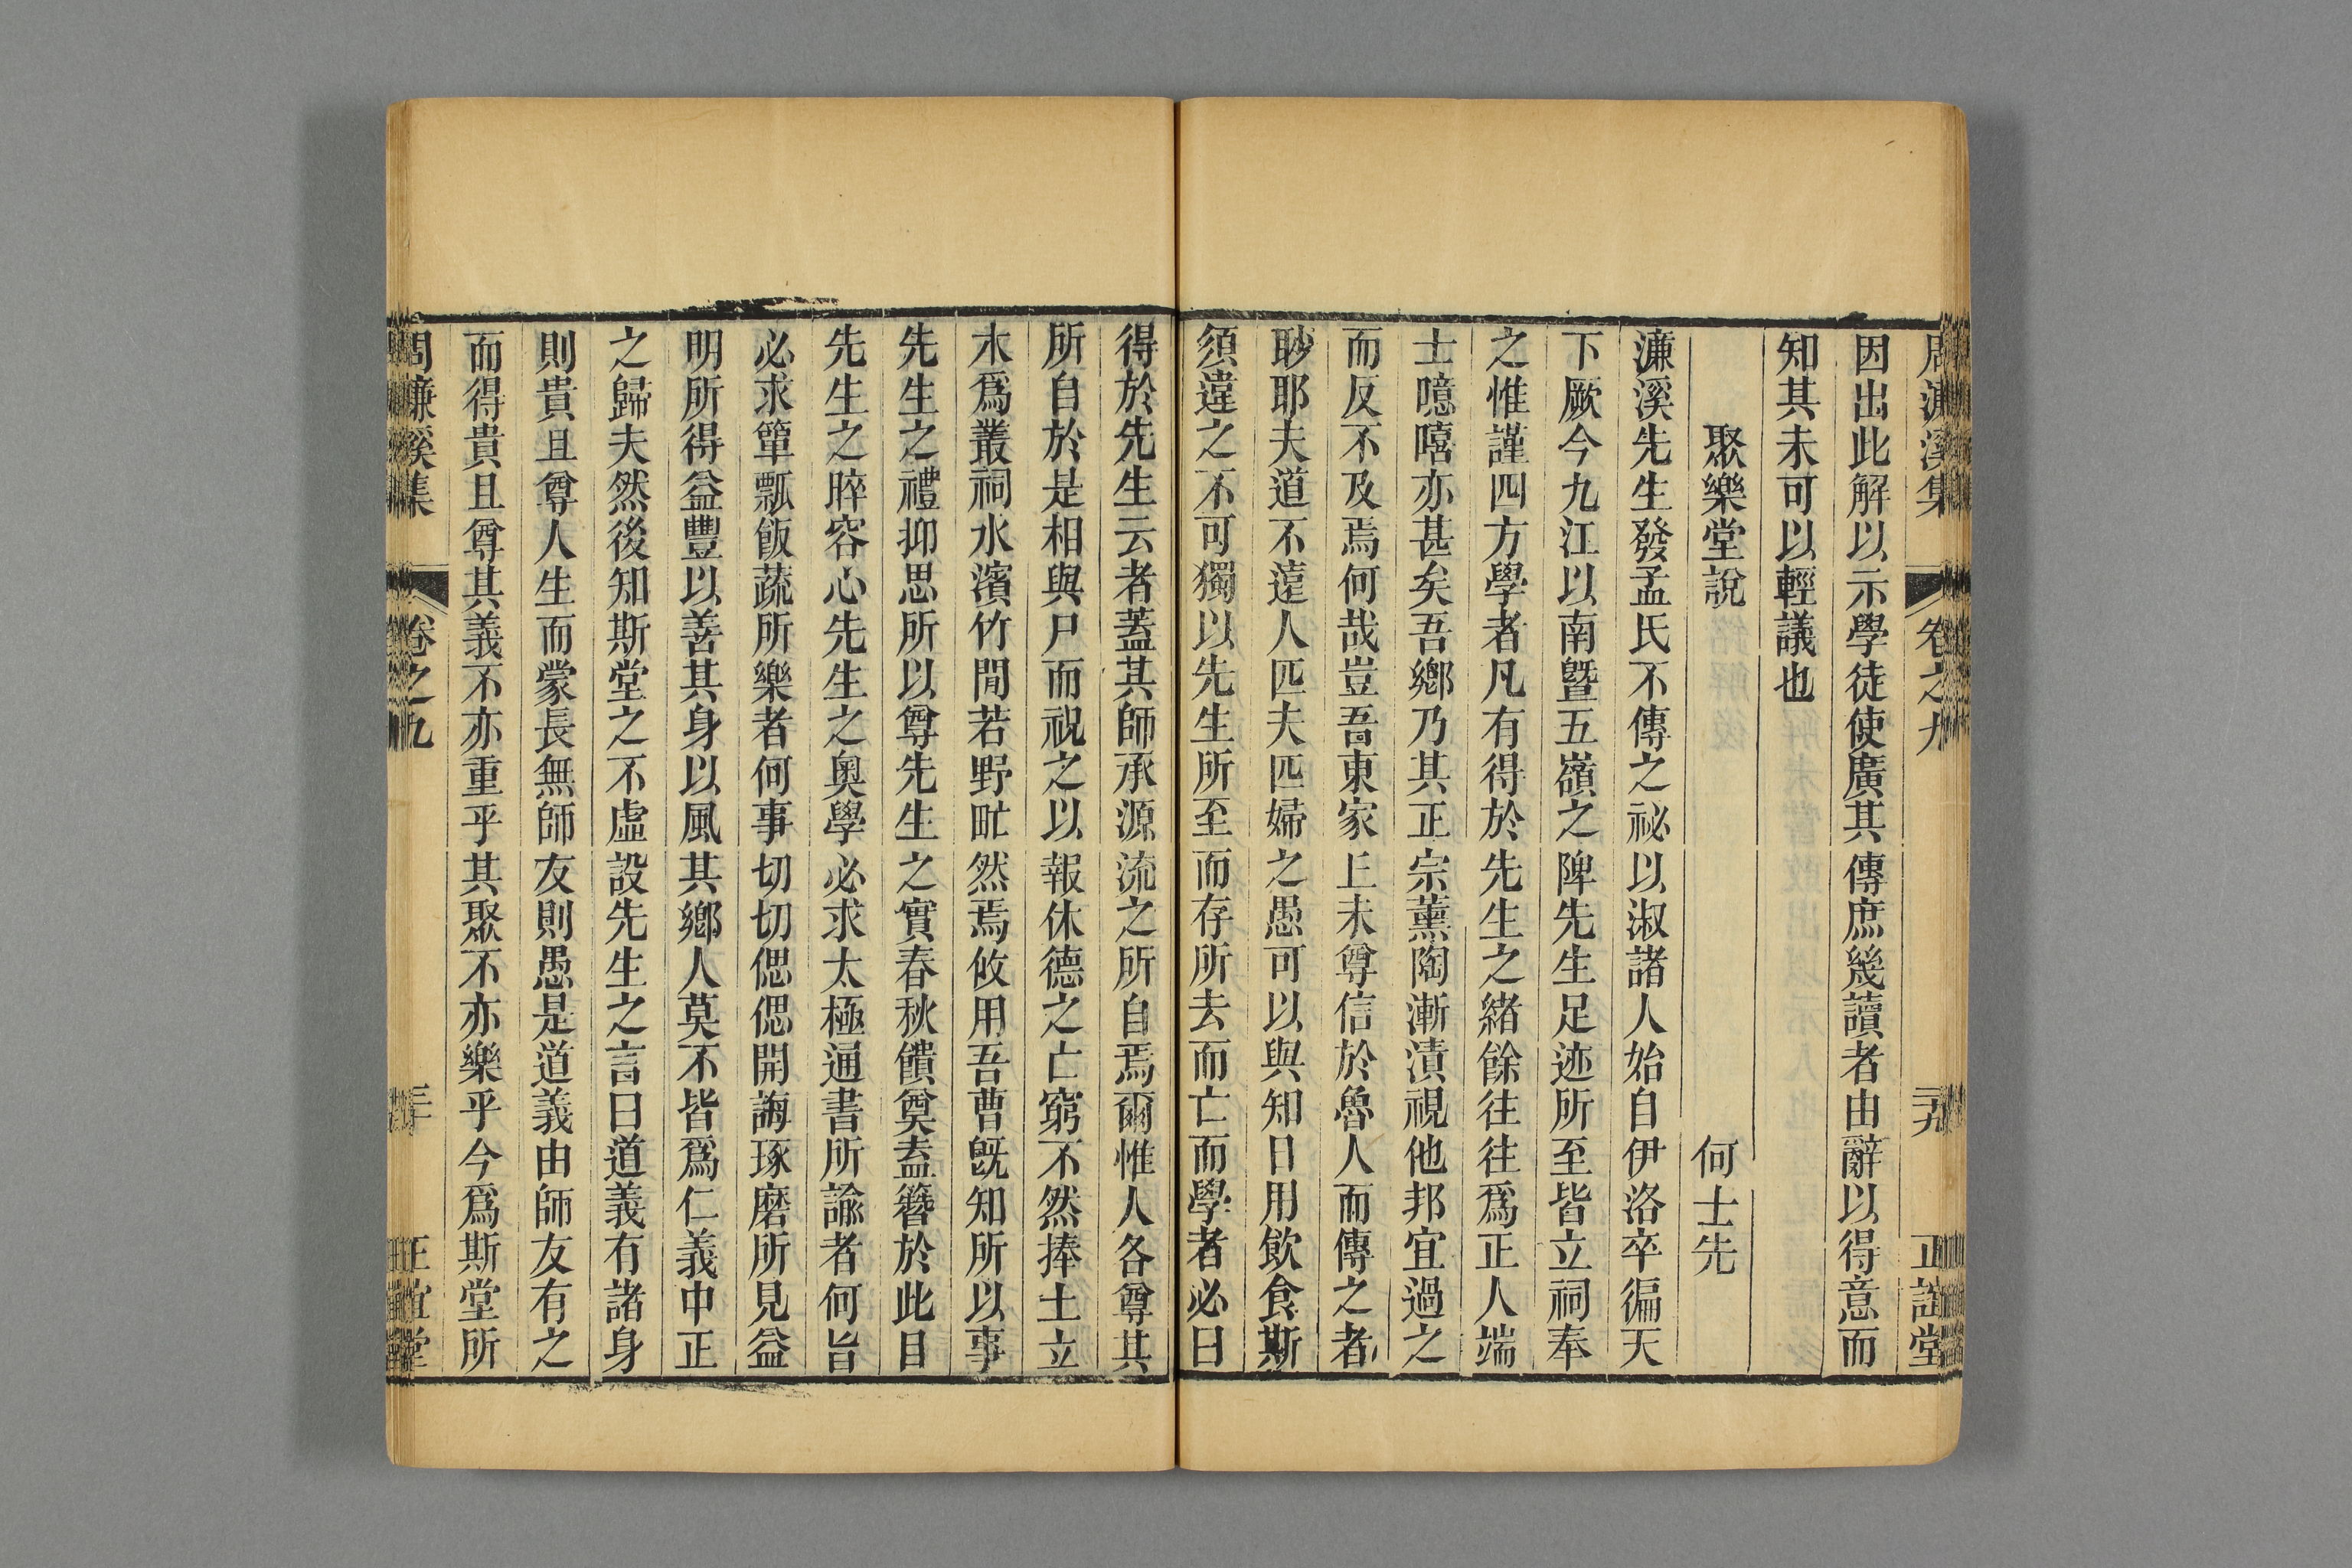 周濂溪集 卷之九 二十九 正誼堂
因出此解以示學徒使廣其傳庶幾讀者由辭以得意而
知其未可以輕議也
聚樂堂說 何士先
濂溪先生發孟氏不傳之祕以淑諸人始自伊洛卒徧天
下厥今九江以南曁五嶺之陴先生足迹所至皆立祠奉
之惟謹四方學者凡有得於先生之緒餘往往爲正人端
士噫嘻亦甚矣吾鄉乃其正宗薰陶漸漬視他邦宜過之
而反不及焉何哉豈吾東家上未尊信於魯人而傳之者
眇耶夫道不遠人匹夫匹婦之愚可以與知日用飲食斯
須違之不可獨以先生所至而存所去而亡而學者必曰
得於先生云者蓋其師承源流之所自焉爾惟人各尊其
所自於是相與尸而祝之以報休德之亡窮不然捧土立
木爲叢祠水濱竹間若野甿然焉攸用吾曹旣知所以事
先生之禮抑思所以尊先生之實春秋饋奠盍簪於此目
先生之睟容心先生之奧學必求太極通書所諭者何旨
必求簞瓢飯蔬所樂者何事切切偲偲開誨琢磨所見益
明所得益豐以善其身以風其鄉人莫不皆爲仁義中正
之歸夫然後知斯堂之不虛設先生之言曰道義有諸身
則貴且尊人生而蒙長無師友則愚是道義由師友有之
而得貴且尊其義不亦重乎其聚不亦樂乎今爲斯堂所
周濂溪集 卷之九 三十 正誼堂